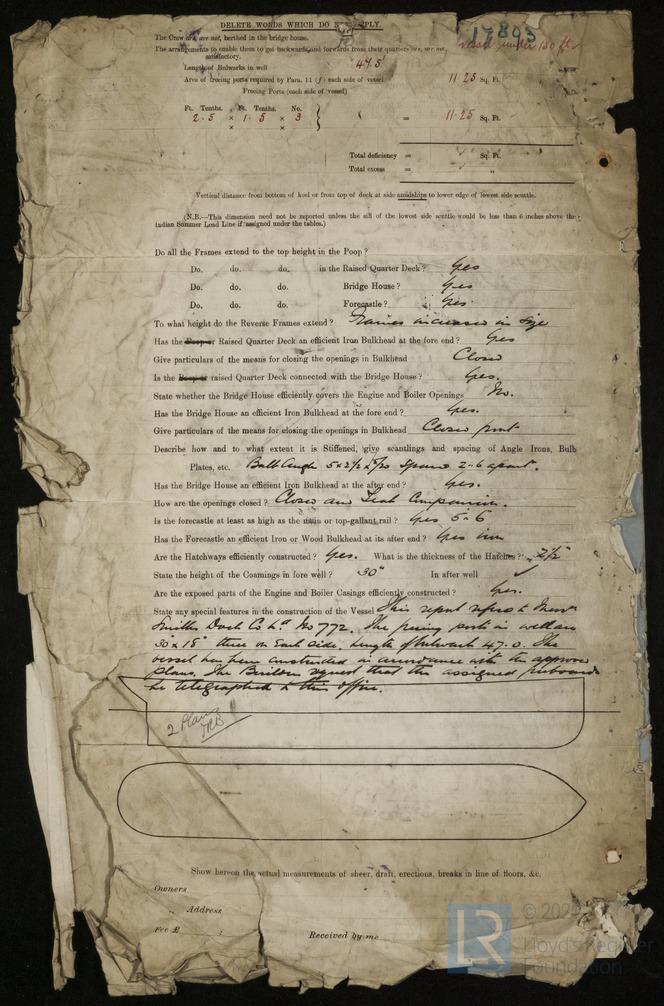 DELETE WORDS WHICH DO NOT APPLY.
17893
The Crew are, are not, berthed in the bridge house.
vessel under 150 ft
The arrangements to enable them to get backwards and forwards from their quarters are, are not,
satisfactory.
Length of Bulwarks in well 47.5
Area of freeing ports required by Para. 11 (f) each side of vessel 11.25 Sq. Ft.
Freeing Ports (each side of vessel)
Ft. Tenths. Ft. Tenths. No.
2.5 × 1.5 × 3 = 11.25 Sq. Ft.
× ×
Total deficiency = Sq. Ft.
Total excess = "
Vertical distance from bottom of keel or from top of deck at side amidships to lower edge of lowest side scuttle.
(N.B.—This dimension need not be reported unless the sill of the lowest side scuttle would be less than 6 inches above the
Indian Summer Load Line if assigned under the tables.)
Do all the Frames extend to the top height in the Poop?
Do. do. do. in the Raised Quarter Deck? Yes
Do. do. do. Bridge House? Yes
Do. do. do. Forecastle? Yes
To what height do the Reverse Frames extend? Frames increased in size
Has the Poop or Raised Quarter Deck an efficient Iron Bulkhead at the fore end? Yes
Give particulars of the means for closing the openings in Bulkhead Closed
Is the Poop or raised Quarter Deck connected with the Bridge House? Yes.
State whether the Bridge House efficiently covers the Engine and Boiler Openings No.
Has the Bridge House an efficient Iron Bulkhead at the fore end? Yes.
Give particulars of the means for closing the openings in Bulkhead Closed front
Describe how and to what extent it is Stiffened, give scantlings and spacing of Angle Irons, Bulb
Plates, etc. Bulb Angle 5 x 2½ x 5/20 Spaced 2-6 apart.
Has the Bridge House an efficient Iron Bulkhead at the after end? Yes.
How are the openings closed? Closed and Teak Companion.
Is the forecastle at least as high as the main or top-gallant rail? Yes 5-6
Has the Forecastle an efficient Iron or Wood Bulkhead at its after end? Yes iron
Are the Hatchways efficiently constructed? Yes. What is the thickness of the Hatches? 2½"
State the height of the Coamings in fore well? 30" In after well ✓
Are the exposed parts of the Engine and Boiler Casings efficiently constructed? Yes.
State any special features in the construction of the Vessel This report refers to Messrs
Smiths Dock Co Ld No 772. The freeing ports in well are
30" x 18" three on each side. Length of bulwark 47.0. The
vessel has been constructed in accordance with the approved
plans. The Builders request that the assigned freeboard
be telegraphed to this office.
2 Plans
JRB
Show hereon the actual measurements of sheer, draft, erections, breaks in line of floors, &c.
Owners
" Address
Fee £ :
Received by me
LR
© 202
Lloyd's Register
Foundation